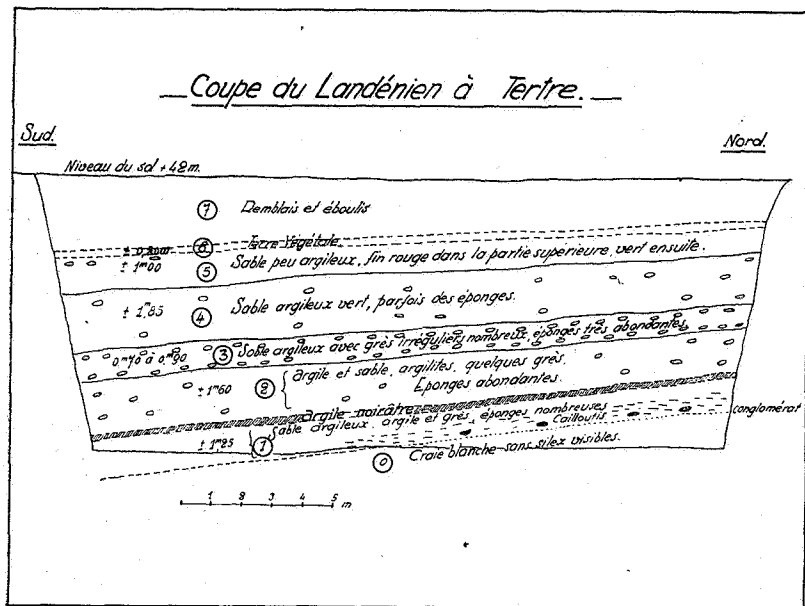 Coupe du Landénien à Tertre.
Sud.
Nord.
Niveau du sol + 42 m.
7 Remblais et éboulis
6 Terre Végétale
± 1m00 5 Sable peu argileux, fin rouge dans la partie supérieure, vert ensuite.
± 1m85 4 Sable argileux vert, parfois des éponges.
0m70 à 0m90 3 Sable argileux avec grès irréguliers nombreux, éponges très abondantes
± 1m60 2 argile et sable, argilites, quelques grès.
Éponges abondantes.
argile noirâtre
± 1m25 1 Sable argileux, argile et grès, éponges nombreuses
Cailloutis
conglomérat
0 Craie blanche sans silex visibles.
1 2 3 4 5
m